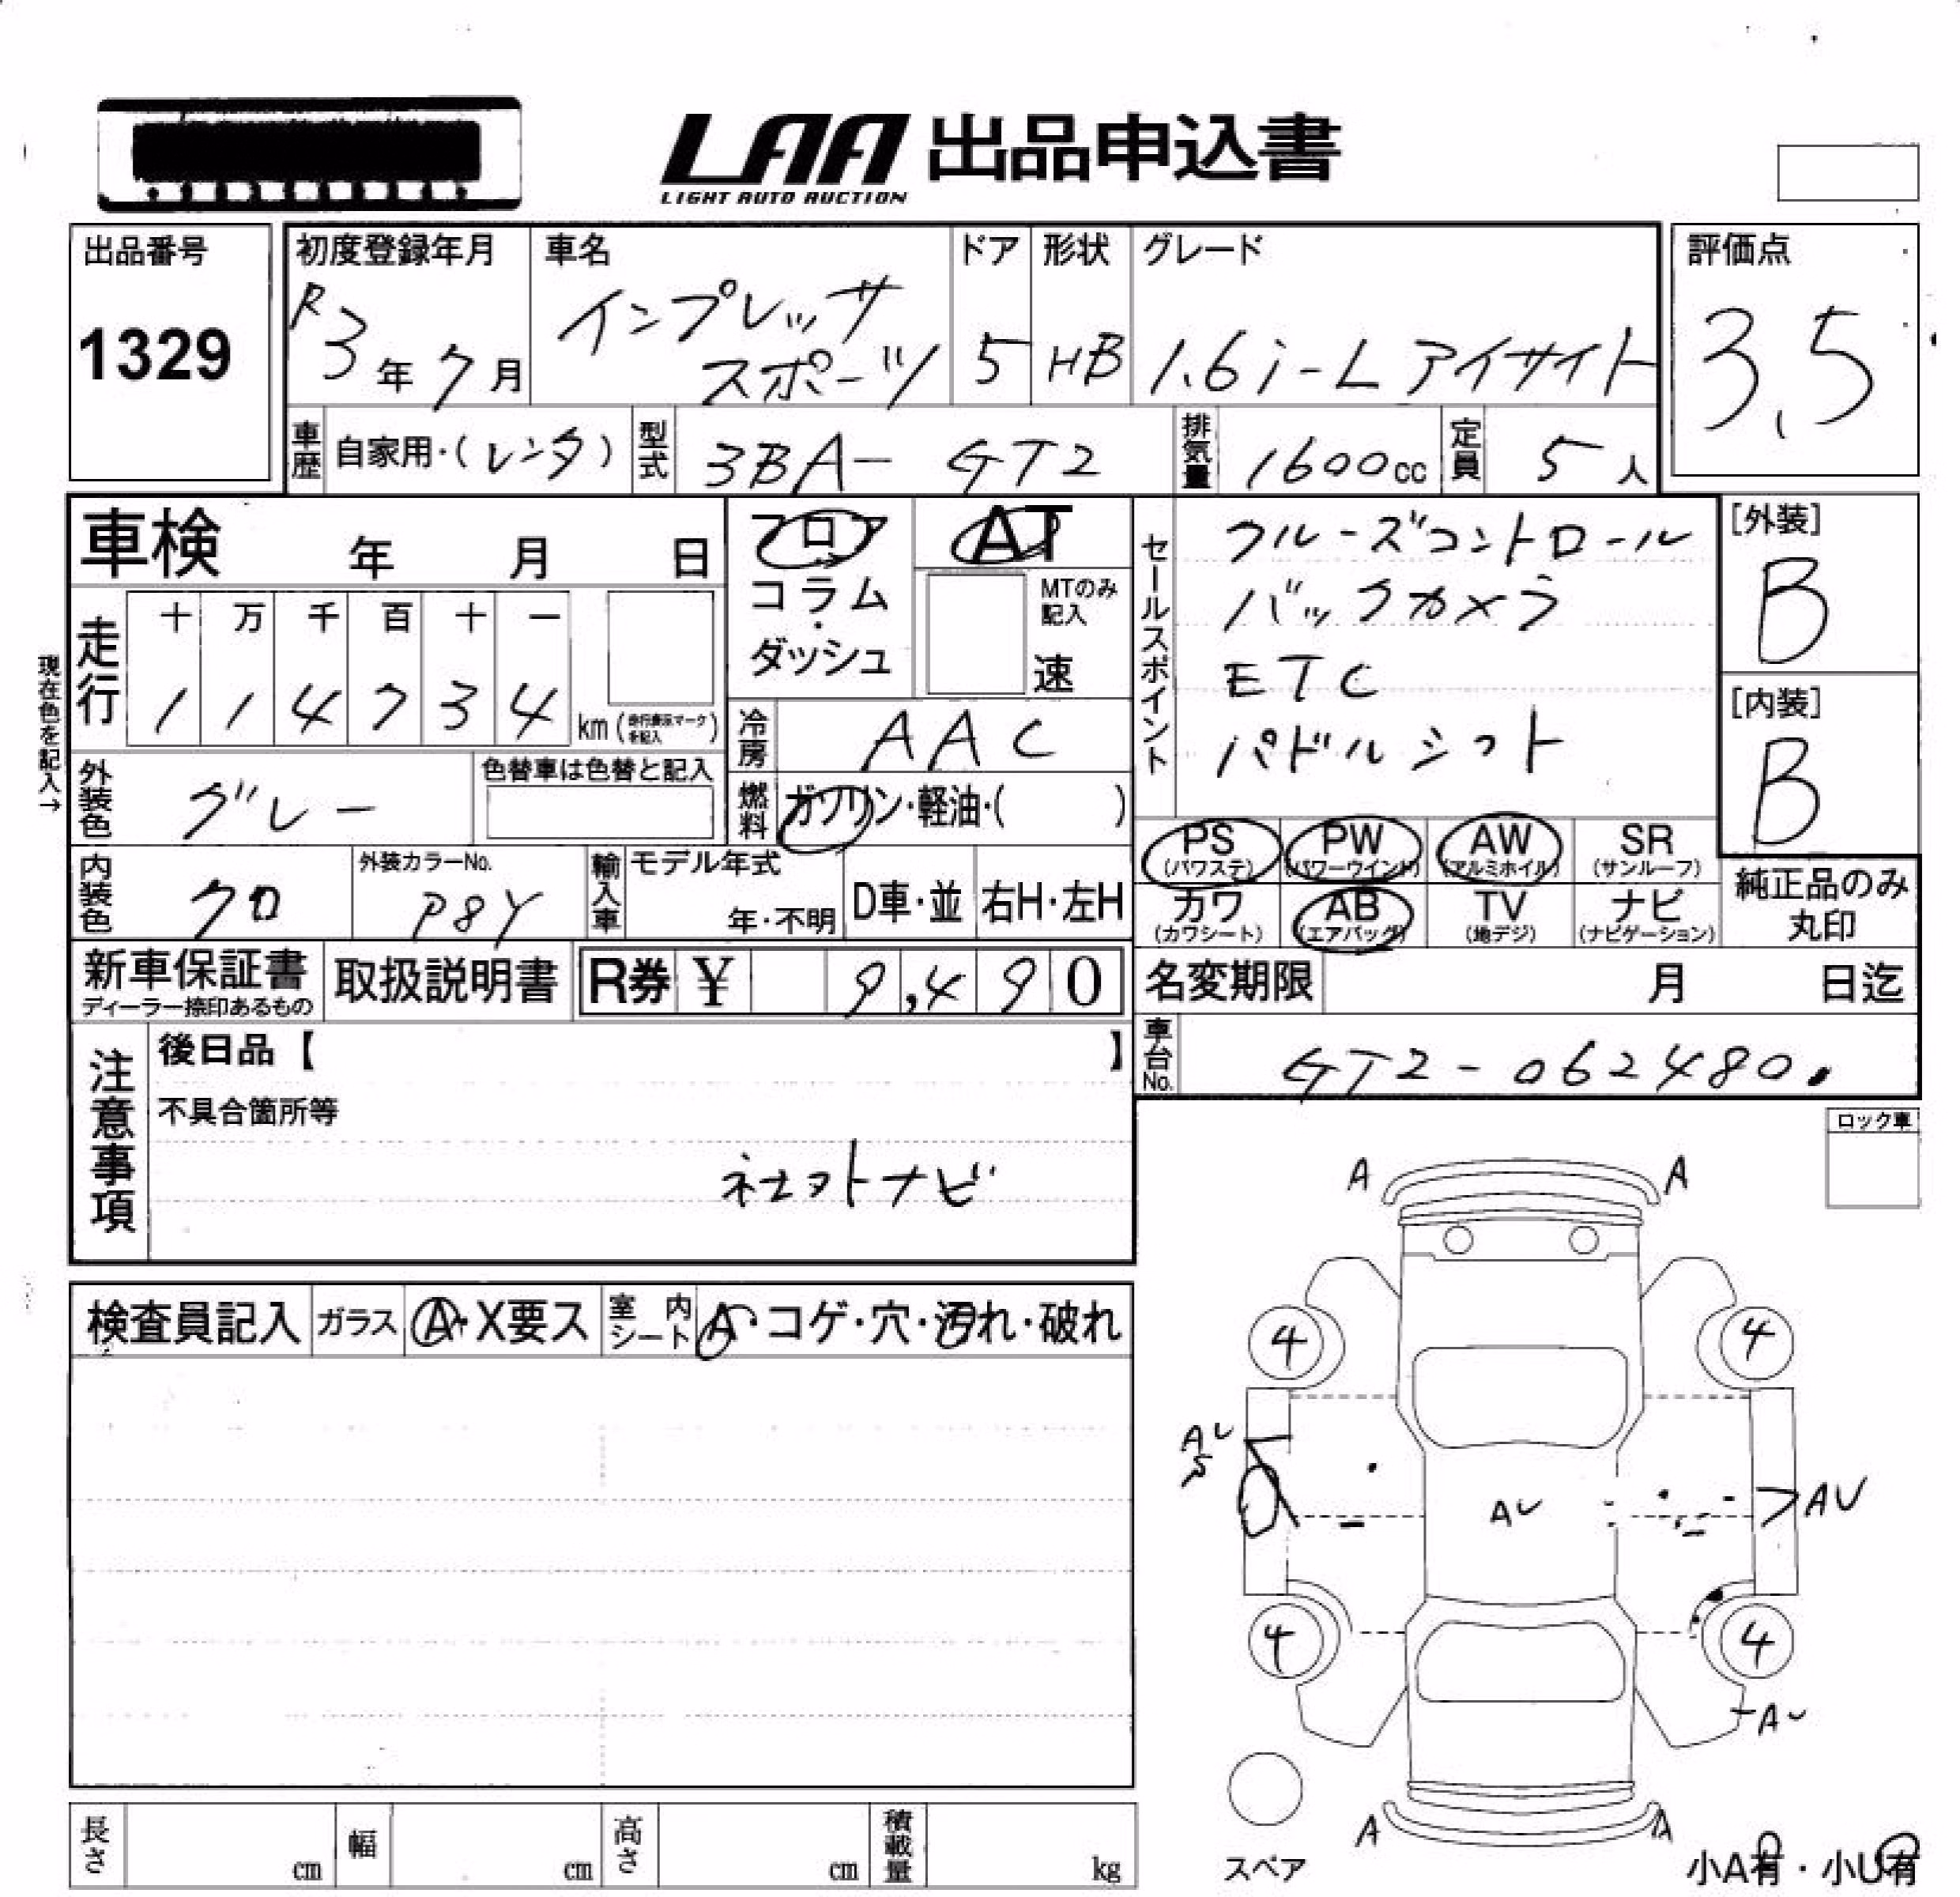 LAA 出品申込書
LIGHT AUTO AUCTION
出品番号
1329
初度登録年月
R3年7月
車名
インプレッサ
スポーツ
ドア
5
形状
HB
グレード
1.6i-L アイサイト
評価点
3.5
車歴 自家用・(レンタ)
型式 3BA- GT2
排気量 1600cc
定員 5人
車検 年 月 日
走行 十 万 千 百 十 一
1 1 4 7 3 4 km (走行表示マークを記入)
現在色を記入→
外装色 グレー
色替車は色替と記入
フロア
コラム
・
ダッシュ
AT
MTのみ
記入
速
冷房 AAC
燃料 ガソリン・軽油・( )
セールスポイント
クルーズコントロール
バックカメラ
ETC
パドルシフト
[外装]
B
[内装]
B
内装色 クロ
外装カラーNo.
P8Y
輸入車 モデル年式
年・不明
D車・並
右H・左H
PS (パワステ)
PW (パワーウインド)
AW (アルミホイル)
SR (サンルーフ)
カワ (カワシート)
AB (エアバッグ)
TV (地デジ)
ナビ (ナビゲーション)
純正品のみ
丸印
新車保証書
ディーラー捺印あるもの
取扱説明書
R券 ¥ 9,490
名変期限 月 日迄
車台No. GT2-062480.
注意事項
後日品【 】
不具合箇所等
社外ナビ
ロック車
検査員記入 ガラス A・X要ス 室内シート A・コゲ・穴・汚れ・破れ
A A
4 4
AU
S
AU
AU
4 4
AU
A A
スペア
小A有・小U有
長さ cm 幅 cm 高さ cm 積載量 kg